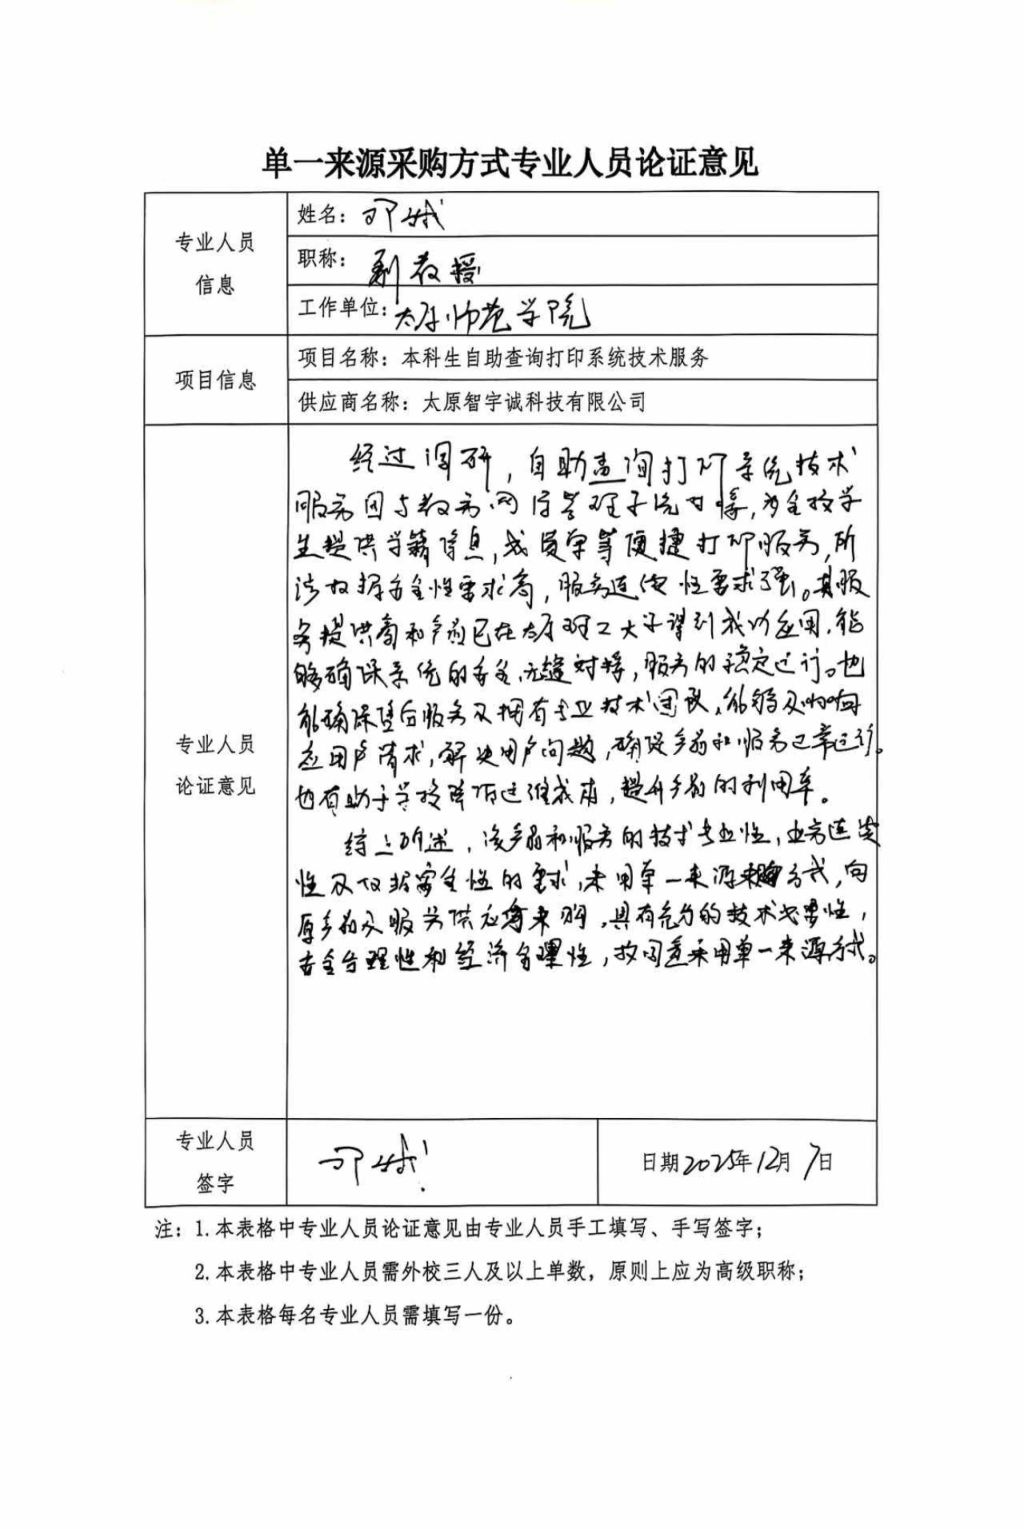 单一来源采购方式专业人员论证意见
专业人员
信息
姓名：
职称：副教授
工作单位：太原师范学院
项目信息
项目名称：本科生自助查询打印系统技术服务
供应商名称：太原智宇诚科技有限公司
专业人员
论证意见
经过调研，自助查询打印系统技术
服务因与教务网络管理系统对接，为全校学
生提供学籍信息，成绩单等便捷打印服务，所
涉数据安全性要求高，服务连续性要求强。其服
务提供商和产品已在太原理工大学得到成功应用，能
够确保系统的安全、无缝对接，服务的稳定运行。也
能确保售后服务及拥有专业技术团队，能够及时响
应用户请求，解决用户问题，确保产品和服务正常运行。
也有助于学校降低运维成本，提升产品的利用率。
综上所述，该产品和服务的技术专业性，业务连续
性及数据安全性的要求，采用单一来源采购方式，向
原产品及服务供应商采购，具有充分的技术必要性，
安全合理性和经济合理性，故同意采用单一来源方式。
专业人员
签字
日期2025年12月7日
注：1.本表格中专业人员论证意见由专业人员手工填写、手写签字；
2.本表格中专业人员需外校三人及以上单数，原则上应为高级职称；
3.本表格每名专业人员需填写一份。